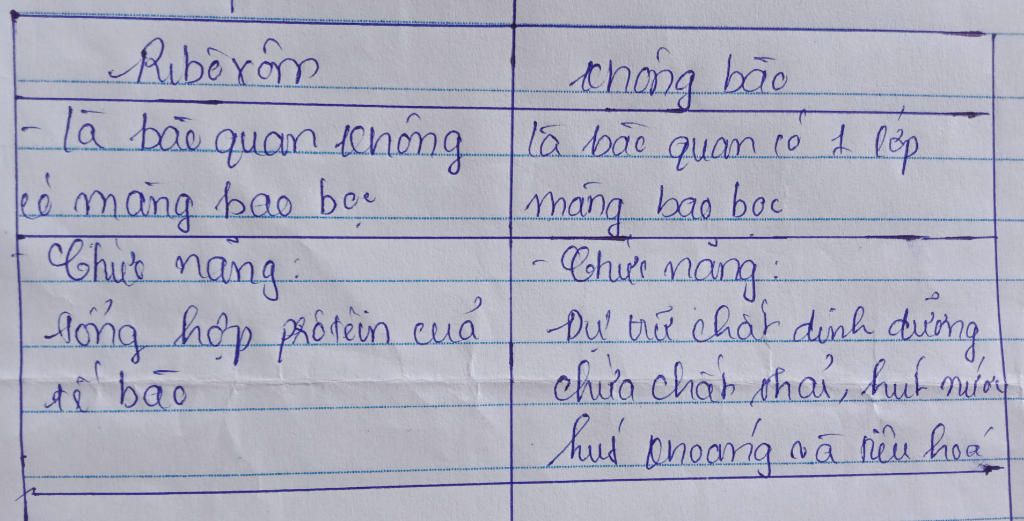 Ribôxôm
không bào
- là bào quan không
có màng bao bọc
là bào quan có 1 lớp
màng bao bọc
Chức năng:
tổng hợp prôtêin cuả
tế bào
- Chức năng:
Dự trữ chất dinh dưỡng
chứa chất thải, hút nước
hút khoáng và tiêu hoá